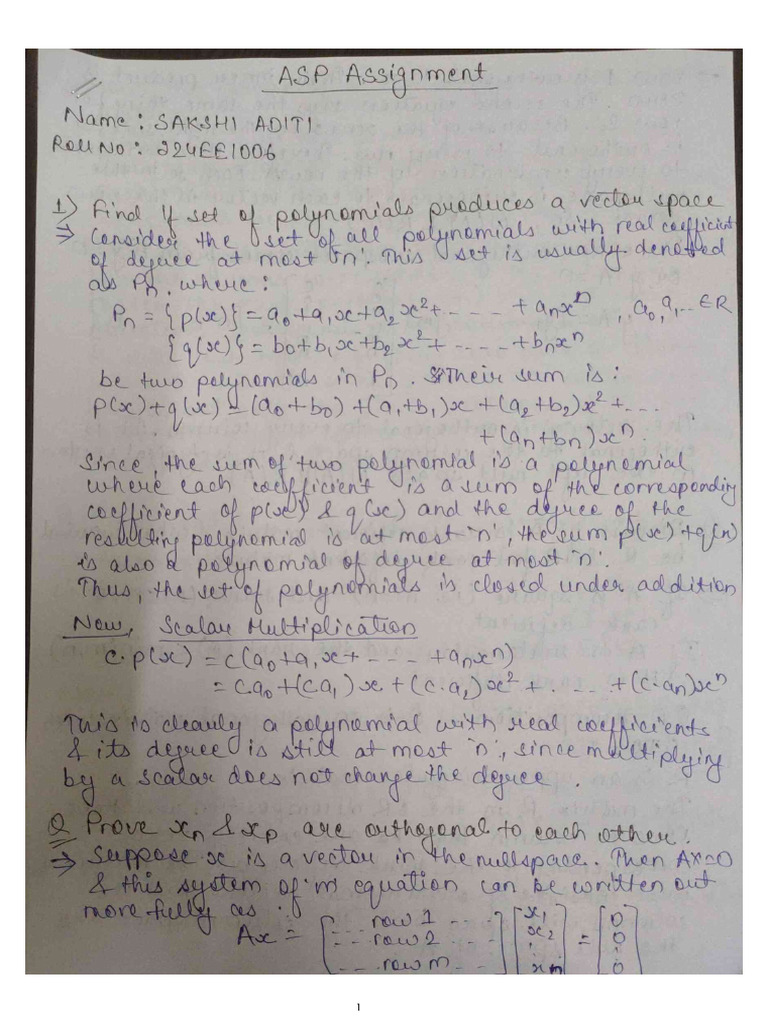 ASP Assignment
Name: SAKSHI ADITI
Roll No: 224EE1006
1) Find if set of polynomials produces a vector space
⇒ Consider the set of all polynomials with real coefficient
of degree at most 'n'. This set is usually denoted
as Pn, where:
Pn = {p(x)} = a0+a1x+a2x²+ - - - - + anxⁿ , a0,a1... ∈R
{q(x)} = b0+b1x+b2x²+ - - - - + bnxⁿ
be two polynomials in Pn. Their sum is:
p(x)+q(x) = (a0+b0)+(a1+b1)x+(a2+b2)x²+...
+(an+bn)xⁿ.
Since, the sum of two polynomial is a polynomial
where each coefficient is a sum of the corresponding
coefficient of p(x) & q(x) and the degree of the
resulting polynomial is at most 'n', the sum p(x)+q(x)
is also a polynomial of degree at most 'n'.
Thus, the set of polynomials is closed under addition
Now, Scalar Multiplication
c.p(x) = c(a0+a1x+ - - - - +anxⁿ)
= c.a0+(c.a1)x+(c.a2)x² + . - - . . +(c.an)xⁿ
This is clearly a polynomial with real coefficients
& its degree is still at most 'n', since multiplying
by a scalar does not change the degree.
Q Prove xn & xp are orthogonal to each other.
⇒ Suppose x is a vector in the nullspace. Then Ax=0
& this system of m equation can be written out
more fully as :
Ax = [... row 1 ...] [x1] = [0]
[... row 2 ...] [x2] [0]
[... row m ...] [xn] [0]
1